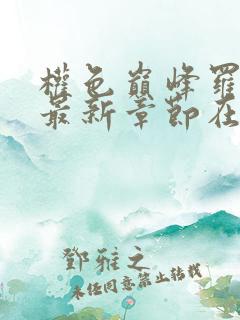 權色巔峰羅
最新章節在
鄧雅之
未经同意禁止转载